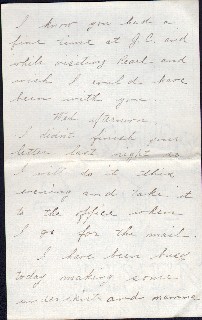 I know you had a
fine time at G.C. and
while visiting Pearl and
wish I could have
been with you.
Wed afternoon
I didn't finish your
letter last night so
I will do it this
evening and take it
to the office when
I go for the mail.
I have been busy
today making some
underskirts and